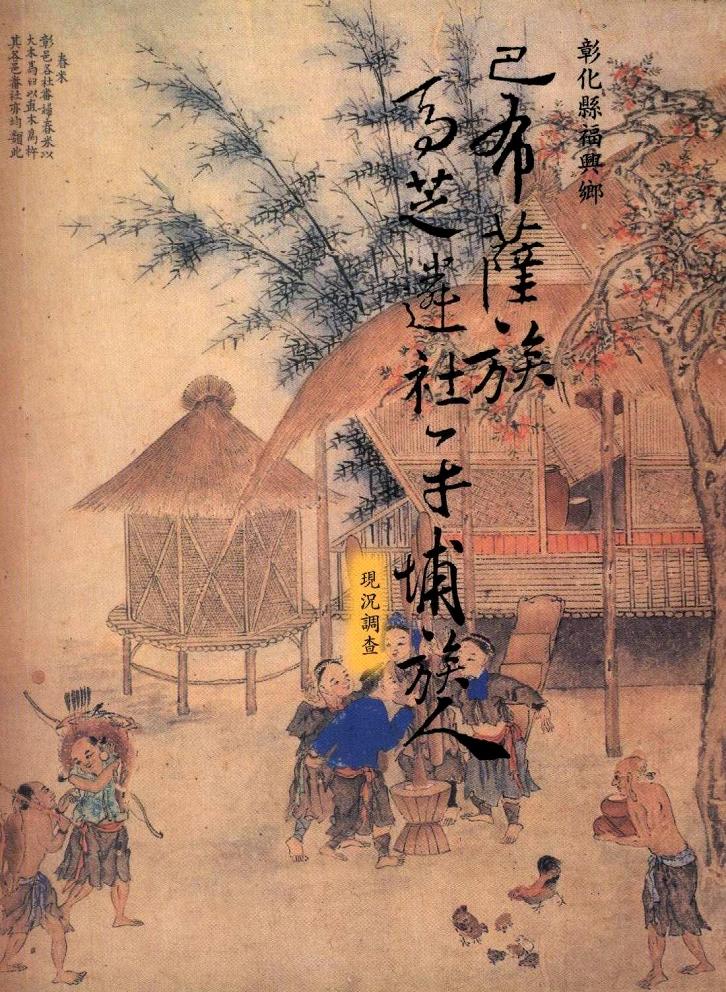 彰化縣福興鄉
巴布薩族
馬芝遴社平埔族人
現況調查
舂米
彰邑各社番婦舂米以
大木為臼以直木為杵
其各邑番社亦均類此